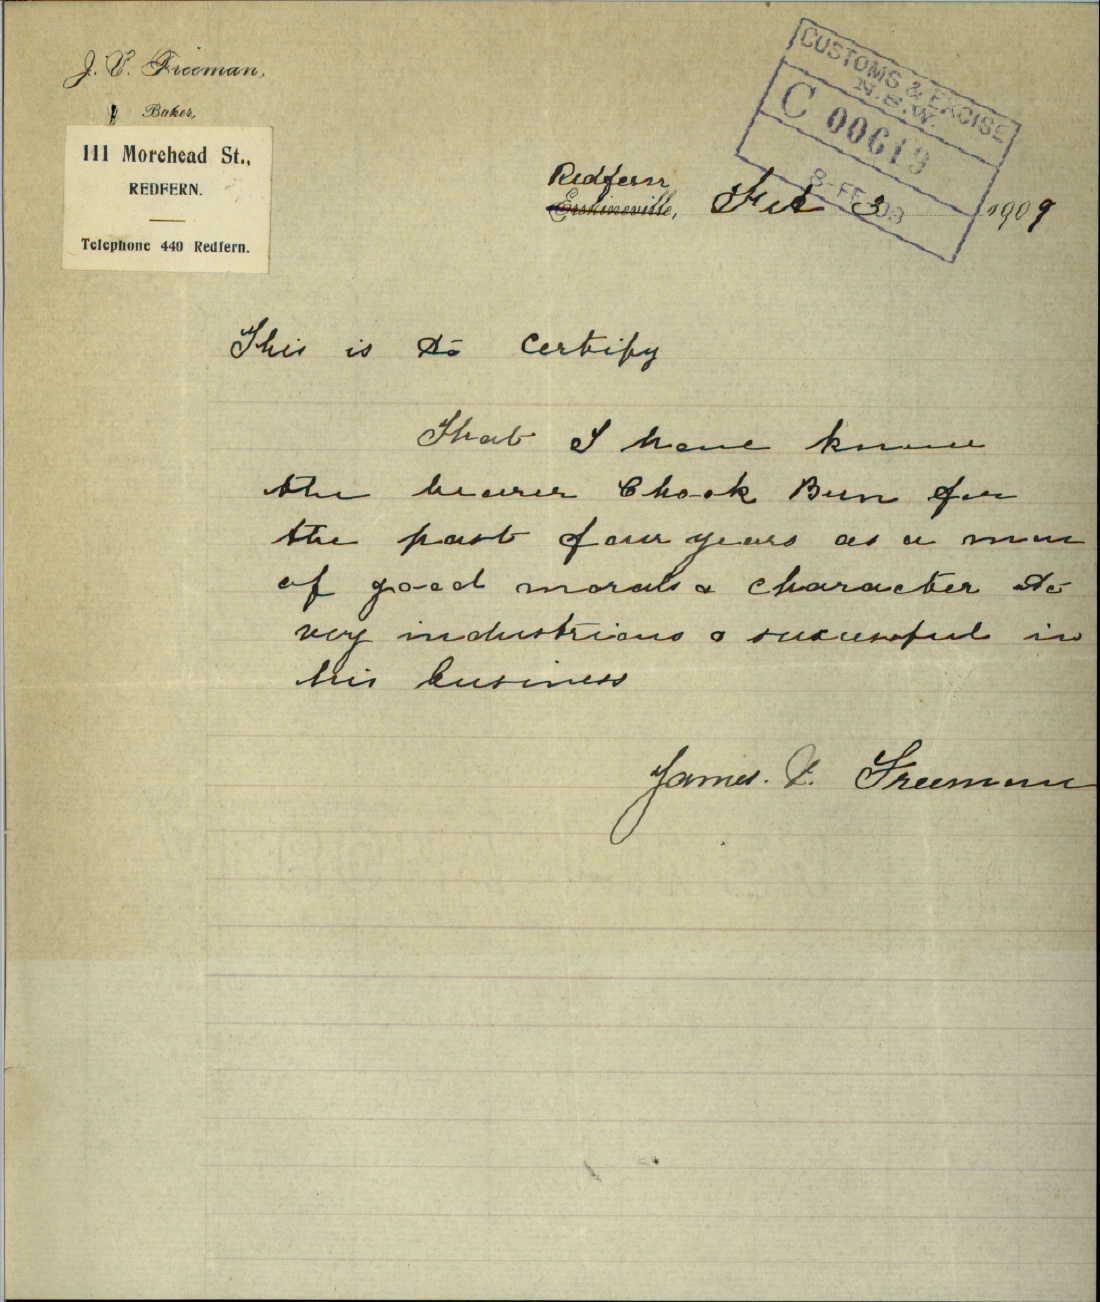 J. V. Freeman,
Baker,
111 Morehead St.,
REDFERN.
Telephone 440 Redfern.
CUSTOMS & EXCISE
N.S.W.
C 00619
8-FE 09
Redfern
Erskineville, Feb 3 1909
This is to certify
That I have known
the bearer Chook Bun for
the past four years as a man
of good morals & character &
very industrious & successful in
his business
James. V. Freeman